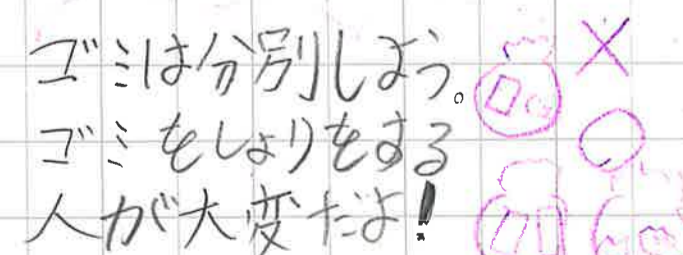 ゴミは分別しよう。
ゴミをしょりをする
人が大変だよ!